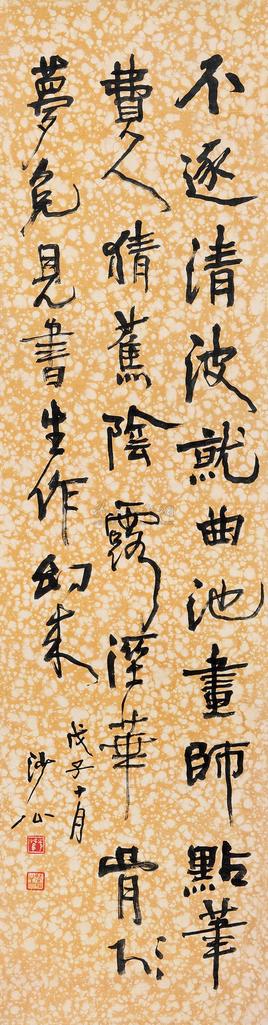 不逐清波就曲池畫師點筆
費人猜蕉陰露溼華胥
夢免見書生作幻來
戊子十月
沙公